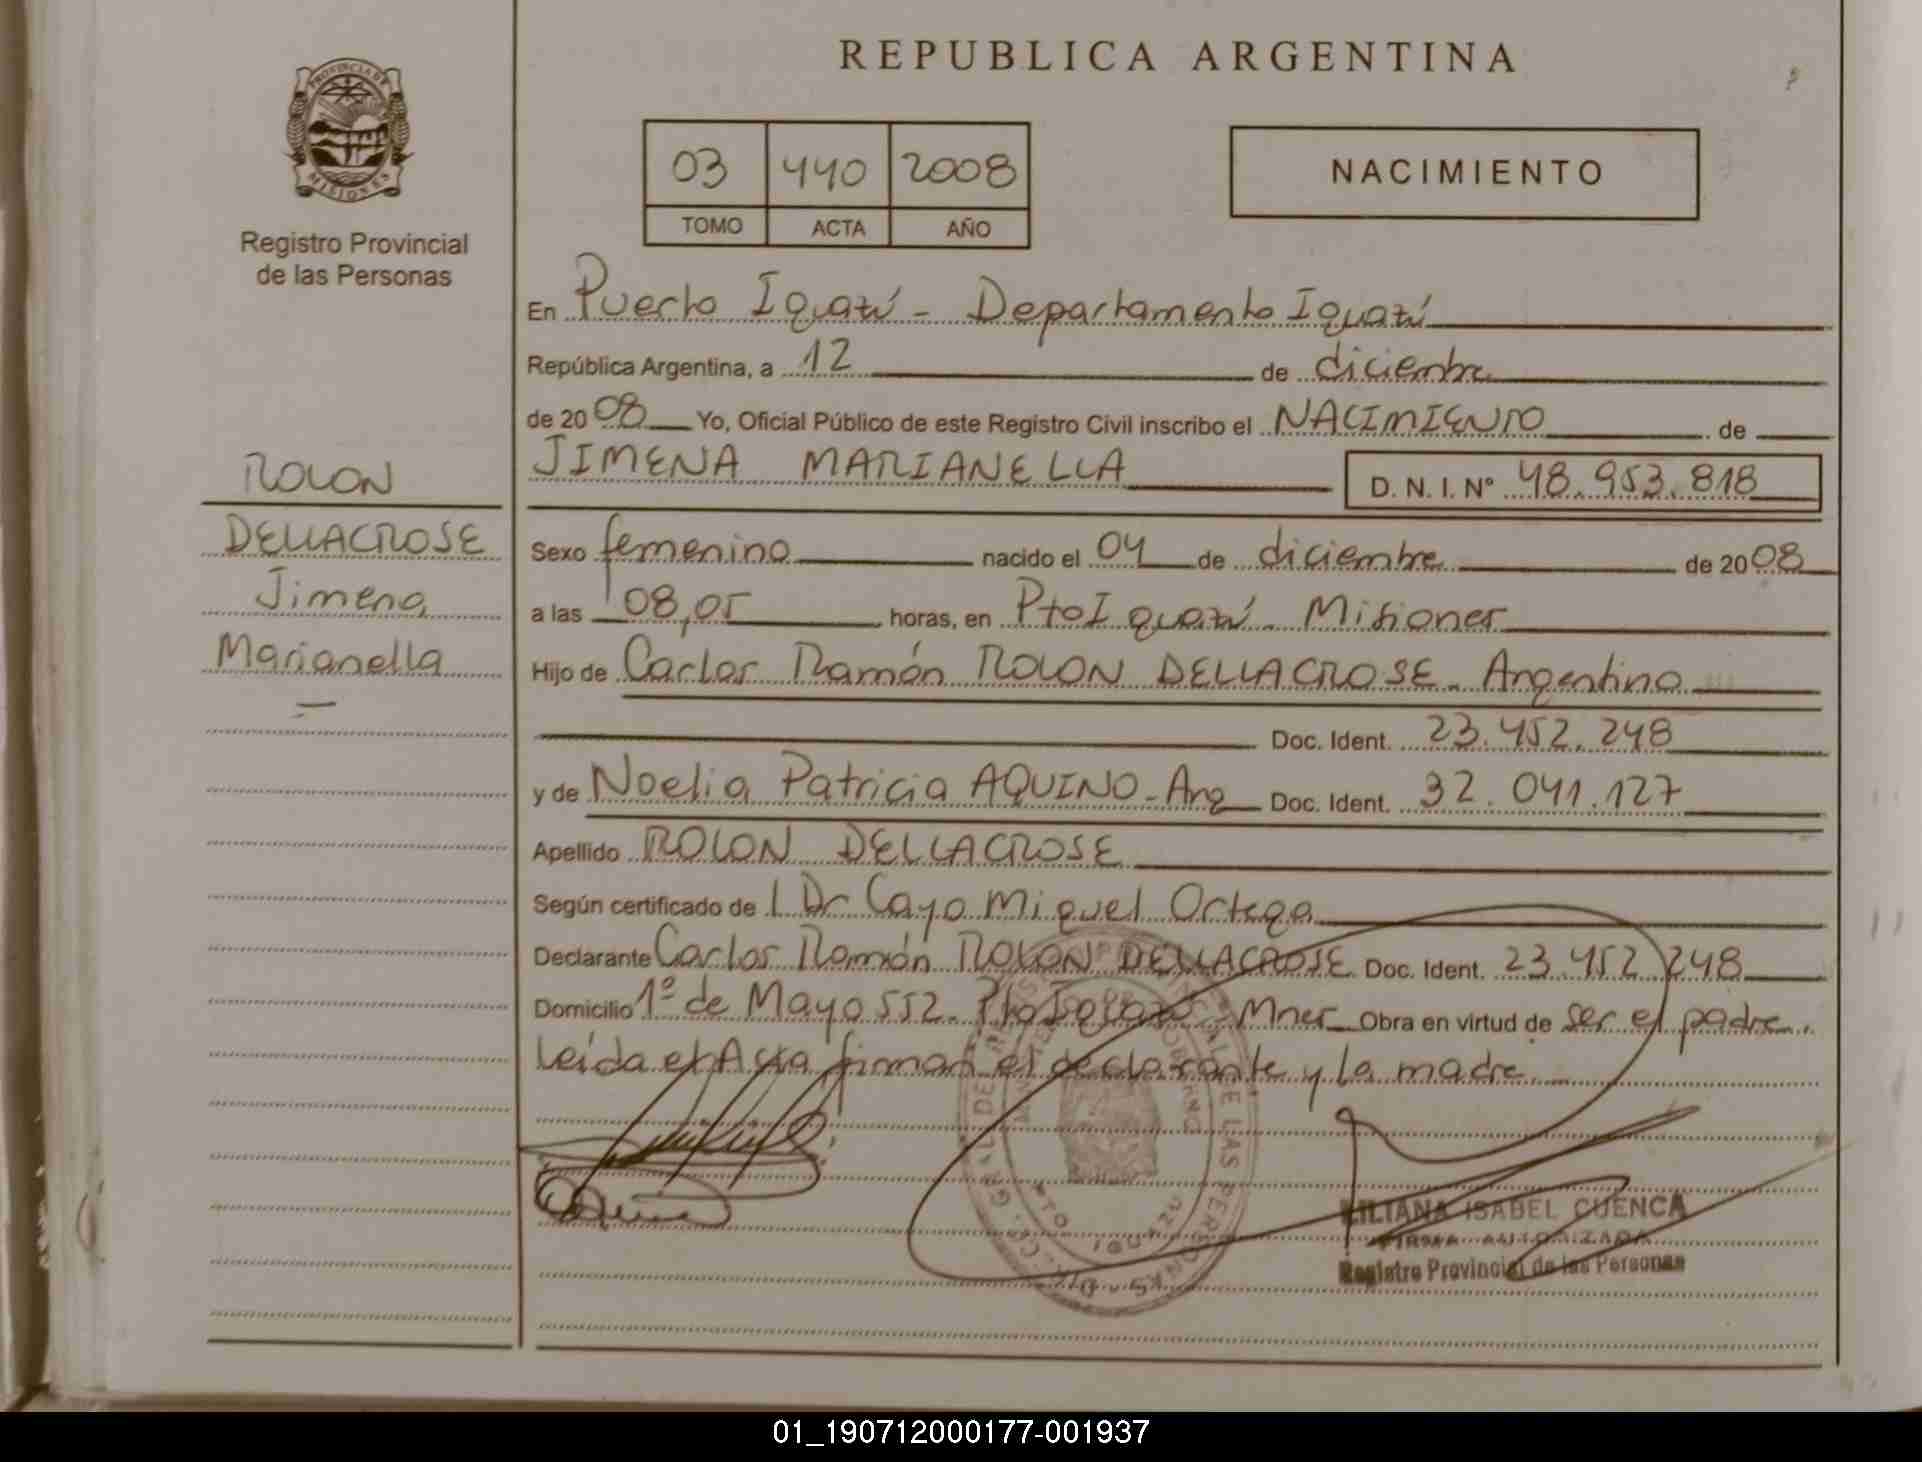 REPUBLICA ARGENTINA
PROVINCIA DE
MISIONES
Registro Provincial
de las Personas
03 440 2008
TOMO ACTA AÑO
NACIMIENTO
ROLON
DELLACROSE
Jimena
Marianella
En Puerto Iguazú - Departamento Iguazú
República Argentina, a 12 de diciembre
de 2008 Yo, Oficial Público de este Registro Civil inscribo el NACIMIENTO de
JIMENA MARIANELLA D. N. I. Nº 48.953.818
Sexo femenino nacido el 04 de diciembre de 2008
a las 08,05 horas, en Pto Iguazú - Misiones
Hijo de Carlos Ramón ROLON DELLACROSE - Argentino
Doc. Ident. 23.452.248
y de Noelia Patricia AQUINO - Arg Doc. Ident. 32.041.127
Apellido ROLON DELLACROSE
Según certificado de l Dr Cayo Miguel Ortega
Declarante Carlos Ramón ROLON DELLACROSE Doc. Ident. 23.452.248
Domicilio 1º de Mayo 552. Pto Iguazú - Mnes Obra en virtud de ser el padre.
Leída el Acta firman el declarante y la madre
LILIANA ISABEL CUENCA
FIRMA AUTORIZADA
Registro Provincial de las Personas
PTO IGUAZU
01_190712000177-001937